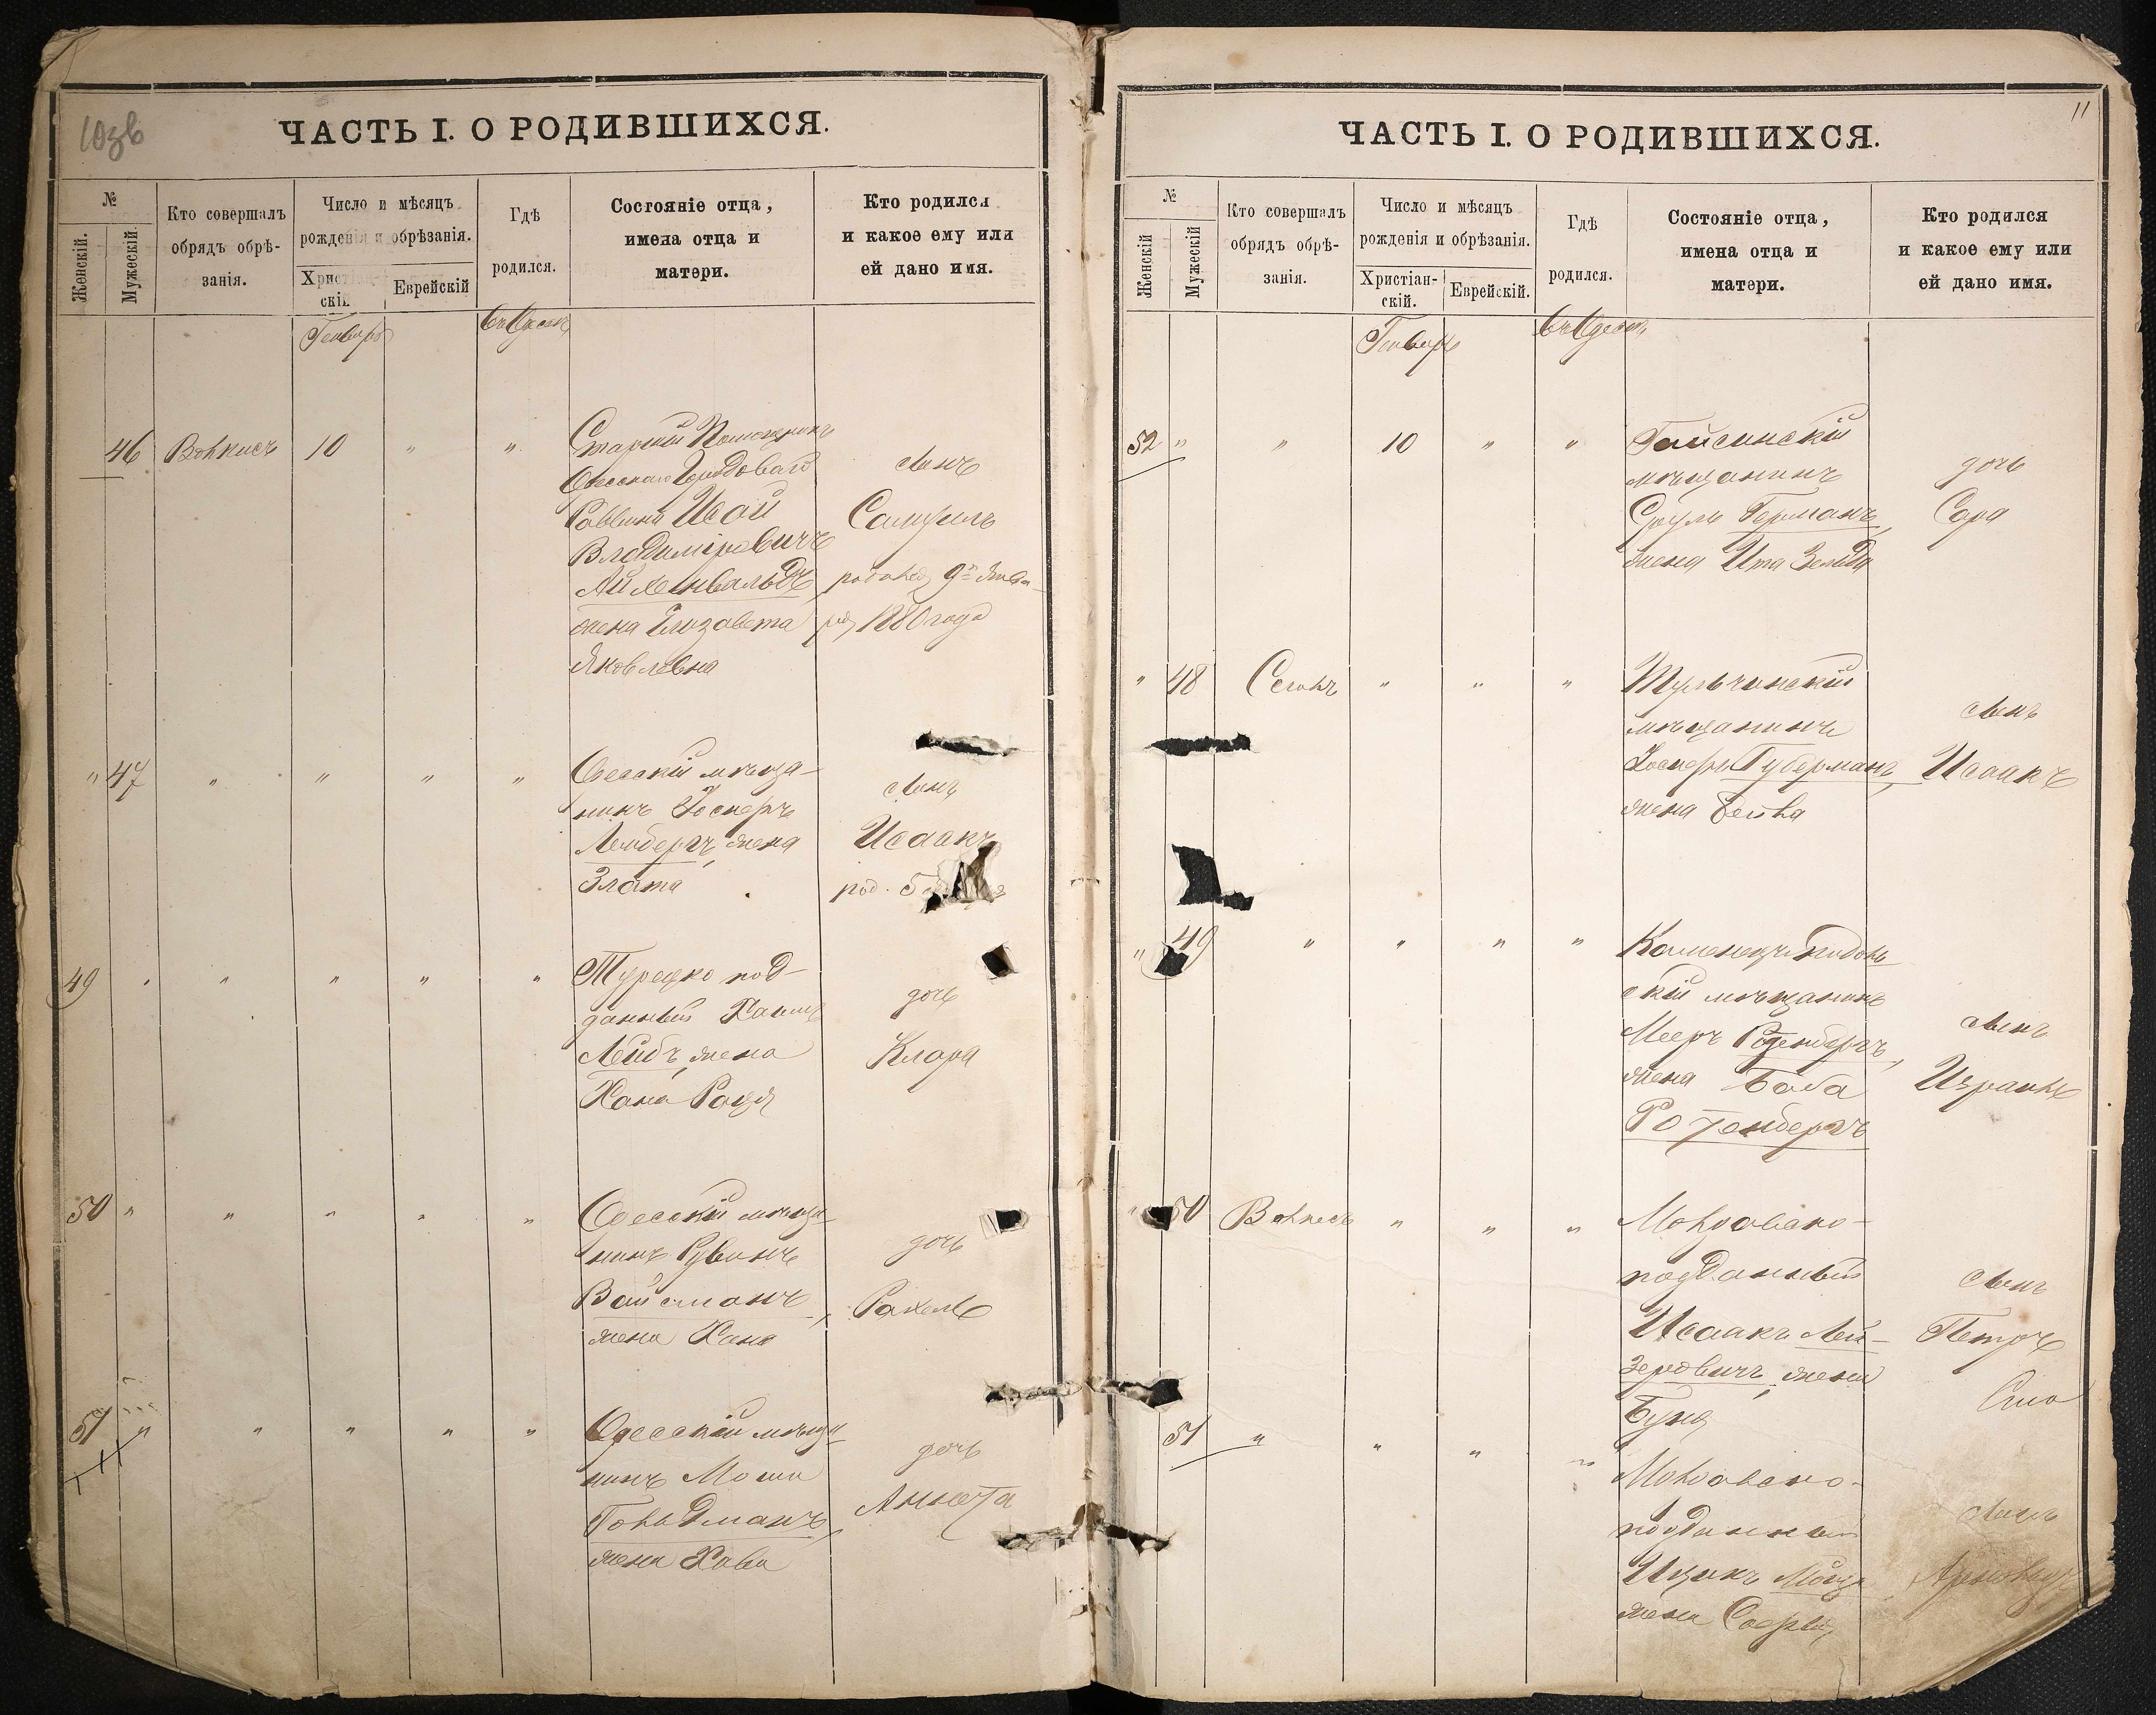 10зв
ЧАСТЬ I. О РОДИВШИХСЯ.
№
Женскій.
Мужескій
Кто совершалъ
обрядъ обрѣ-
занія.
Число и мѣсяцъ
рожденія и обрѣзанія.
Христіан-
скій.
Еврейскій
Гдѣ
родился.
Состояніе отца,
имена отца и
матери.
Кто родился
и какое ему или
ей дано имя.
Генварь
въ Одессѣ
46 Волкисъ 10 " "
Старшій Помощникъ
Одесскаго Городоваго
Раввина Исай
Владиміровичъ
Айхенвальдъ,
жена Елизавета
Яковлевна
сынъ
Самуилъ
родился 9го Янва-
ря 1880 года
" 47 " " " "
Одесскій мѣща-
нинъ Іосифъ
Лембергъ, жена
Злата
сынъ
Исаакъ
род. 5
49 " " " " "
Турецко под-
данный Хаимъ
Лейбъ, жена
Хана Рашя
дочь
Клара
50 " " " " "
Одесскій мѣща-
нинъ Рувинъ
Вайсманъ,
жена Хана
дочь
Рахель
51 " " " " "
Одесскій мѣща-
нинъ Моши
Гольдманъ,
жена Хава
дочь
Аннета
11
ЧАСТЬ I. О РОДИВШИХСЯ.
№
Женскій
Мужескій
Кто совершалъ
обрядъ обрѣ-
занія.
Число и мѣсяцъ
рожденія и обрѣзанія.
Христіан-
скій.
Еврейскій.
Гдѣ
родился.
Состояніе отца,
имена отца и
матери.
Кто родился
и какое ему или
ей дано имя.
Генварь
въ Одессѣ
52 " " 10 " "
Гайсинскій
мѣщанинъ
Сруль Германъ,
жена Ита Зельда
дочь
Сара
" 48 Сегалъ " " "
Тульчинскій
мѣщанинъ
Іосифъ Губерманъ,
жена Бейла
сынъ
Исаакъ
" 49 " " " "
Каменецъ-Подоль-
скій мѣщанинъ
Мееръ Розенбергъ,
жена Баба
Ротенбергъ
сынъ
Израиль
" 50 Волкисъ " " "
Молдавано-
подданный
Исаакъ Лей-
зеровичъ, жена
Буня
сынъ
Петръ
51 " " " "
Молдавано-
подданный
Ицикъ
жена Софья
сынъ